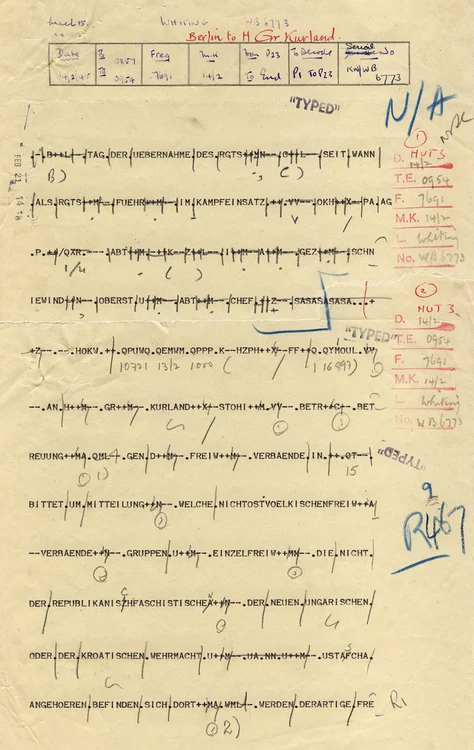 WHITING WB 6773
Berlin to H Gr Kurland.
Date II 0857 Freq M.K To Decode Serial No
14/2/45 III 0954 7691 14/2 To End P1 To P23 KN/WB 6773
"TYPED"
N/A
--.B++L--.TAG.DER.UEBERNAHME.DES.RGTS++MN--.C++L--.SEIT.WANN
B)
1
HUT 3
D. 14/2
T.E. 0954
F. 7691
M.K. 14/2
L. Whiting
No. WB6773
.ALS.RGTS++M--.FUEHR++M--.IM.KAMPFEINSATZ.++.VV--.OKH++X--.PA.AG
.P.++/QXR.--.ABT++M.++K--.Z++L--.I++M--.A++M--.GEZ++M--.SCHN
IEWIND++N--.OBERST.U++M--.ABT++M--.CHEF.++Z---.SASASASASA...+
2
HUT 3
D. 14/2
T.E. 0954
F. 7691
M.K. 14/2
L. Whiting
No. WB6773
"TYPED"
+Z--.--.HOKW.++.QPUWQ.QEMWM.QPPP.K--HZPH++X--FF++Q.QYMOUL.VV
10721 13/2 1000 ( 1 16997)
--.AN.H++M--.GR++M--.KURLAND++X--STOHI++M.VV--.BETR++C--.BET
REUUNG++MA.QML--.GEN.D++M--.FREIW++M--.VERBAENDE.IN.++QT--
1) 15
"TYPED"
BITTET.UM.MITTEILUNG++N--.WELCHE.NICHTOSTVOELKISCHENFREIW++A
--VERBAENDE++N--GRUPPEN.U++M--.EINZELFREIW++MN--.DIE.NICHT.
9
R467
DER.REPUBLIKANISZHFASCHISTISCHEA++N--.DER.NEUEN.UNGARISCHEN.
ODER.DER.KROATISCHEN.WEHRMACHT.U++M--.UA.NN.U++M--.USTAFCHA.
ANGEHOEREN.BEFINDEN.SICH.DORT++MA.WML--.WERDEN.DERARTIGE.FRE
2)
R1